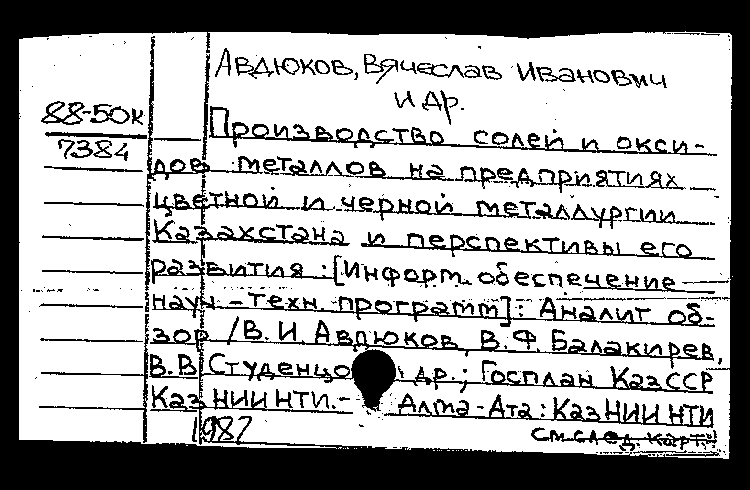 Авдюков, Вячеслав Иванович
и др.
88-50к
7384
Производство солей и окси-
дов металлов на предприятиях
цветной и черной металлургии
Казахстана и перспективы его
развития : [Информ. обеспечение
науч.-техн. программ] : Аналит. об-
зор / В. И. Авдюков, В. Ф. Балакирев,
В. В. Студенцо др. ; Госплан КазССР
КазНИИНТИ. - Алма-Ата : КазНИИНТИ
1987
См. след. карт.